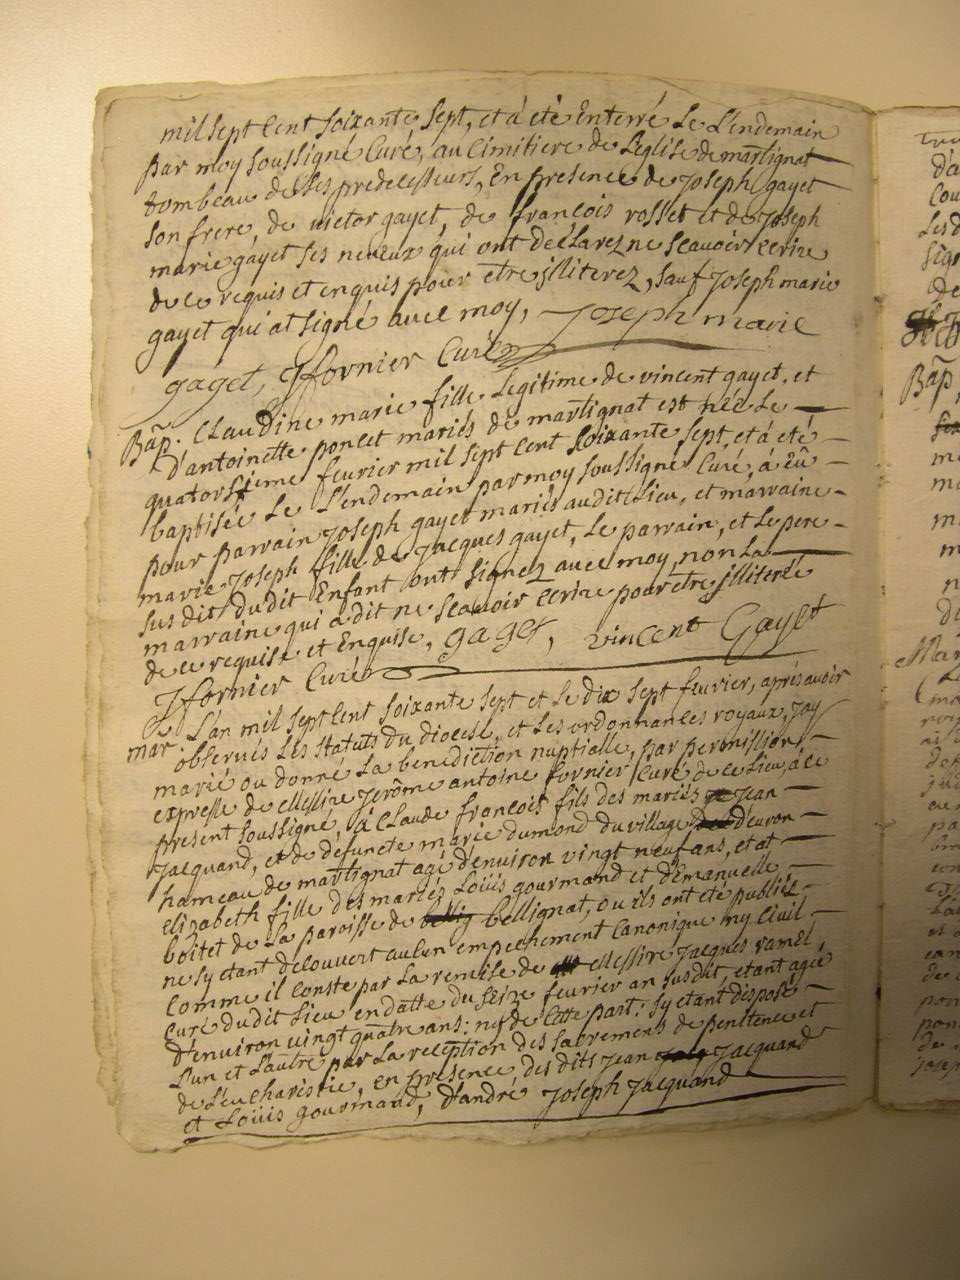 mil sept cent soixante sept, et à été Enterré le Lendemain
par moy soussigné Curé, au Cimitiere de Leglise de martignat
tombeau de ses predecesseurs, En presence de joseph gayet
son frere, de victor gayet, de francois rosset et de joseph
marie gayet ses neveux qui ont déclarez ne scavoir ecrire
de ce requis et enquis pour etre jlliterez, sauf joseph marie
gayet qui at signé avec moy, Joseph marie
gaget, Jfornier Curé
Bap. Claudine marie fille Legitime de vincent gayet, et
d'antoinette poncet mariés de martignat est née Le
quatorsieme fevrier mil sept cent soixante sept, et à été
baptisée Le Lendemain par moy soussigné Curé, à Eü
pour parrain joseph gayet mariés audit Lieu, et marraine
marie joseph fille de jacques gayet, Le parrain, et Le pere
sus dit dudit Enfant ont signez avec moy, non La
marraine qui à dit ne scavoir ecrire pour etre jlliterée
de ce requise et Enquise, gaget, vincent Gayet
Jfornier Curé
mar. L'an mil sept cent soixante sept et Le dix sept fevrier, après avoir
observés Les statuts du diocese, et Les ordonnances royaux, jay
marié ou donné La benediction nuptialle, par permission
expresse de Messire jerôme antoine fornier Curé de ce Lieu, à ce
present soussigné, à Claude francois fils des mariés jean
jacquand, et de defuncte marie dumond du village d'evron
hameau de martignat agé d'environ vingt neuf ans, et at
elizabeth fille des mariés Loüis gourmand et d'emanuelle
boitet de La paroisse de bellignat, ou ils ont été publiés
ne sy etant decouvert aucun empechement Canonique ny Civil
comme il conste par La remise de Messire jacques ramel,
Curé dudit Lieu en datte du seize fevrier an susdit, etant agée
d'environ vingt quatre ans: nés de cette part: sy etant disposé
L'un et L'autre par La reception des sacremens de penitence et
de L'eucharistie, en presence des dits jean jacquand
et Loüis gourmand, d'andré joseph jacquand